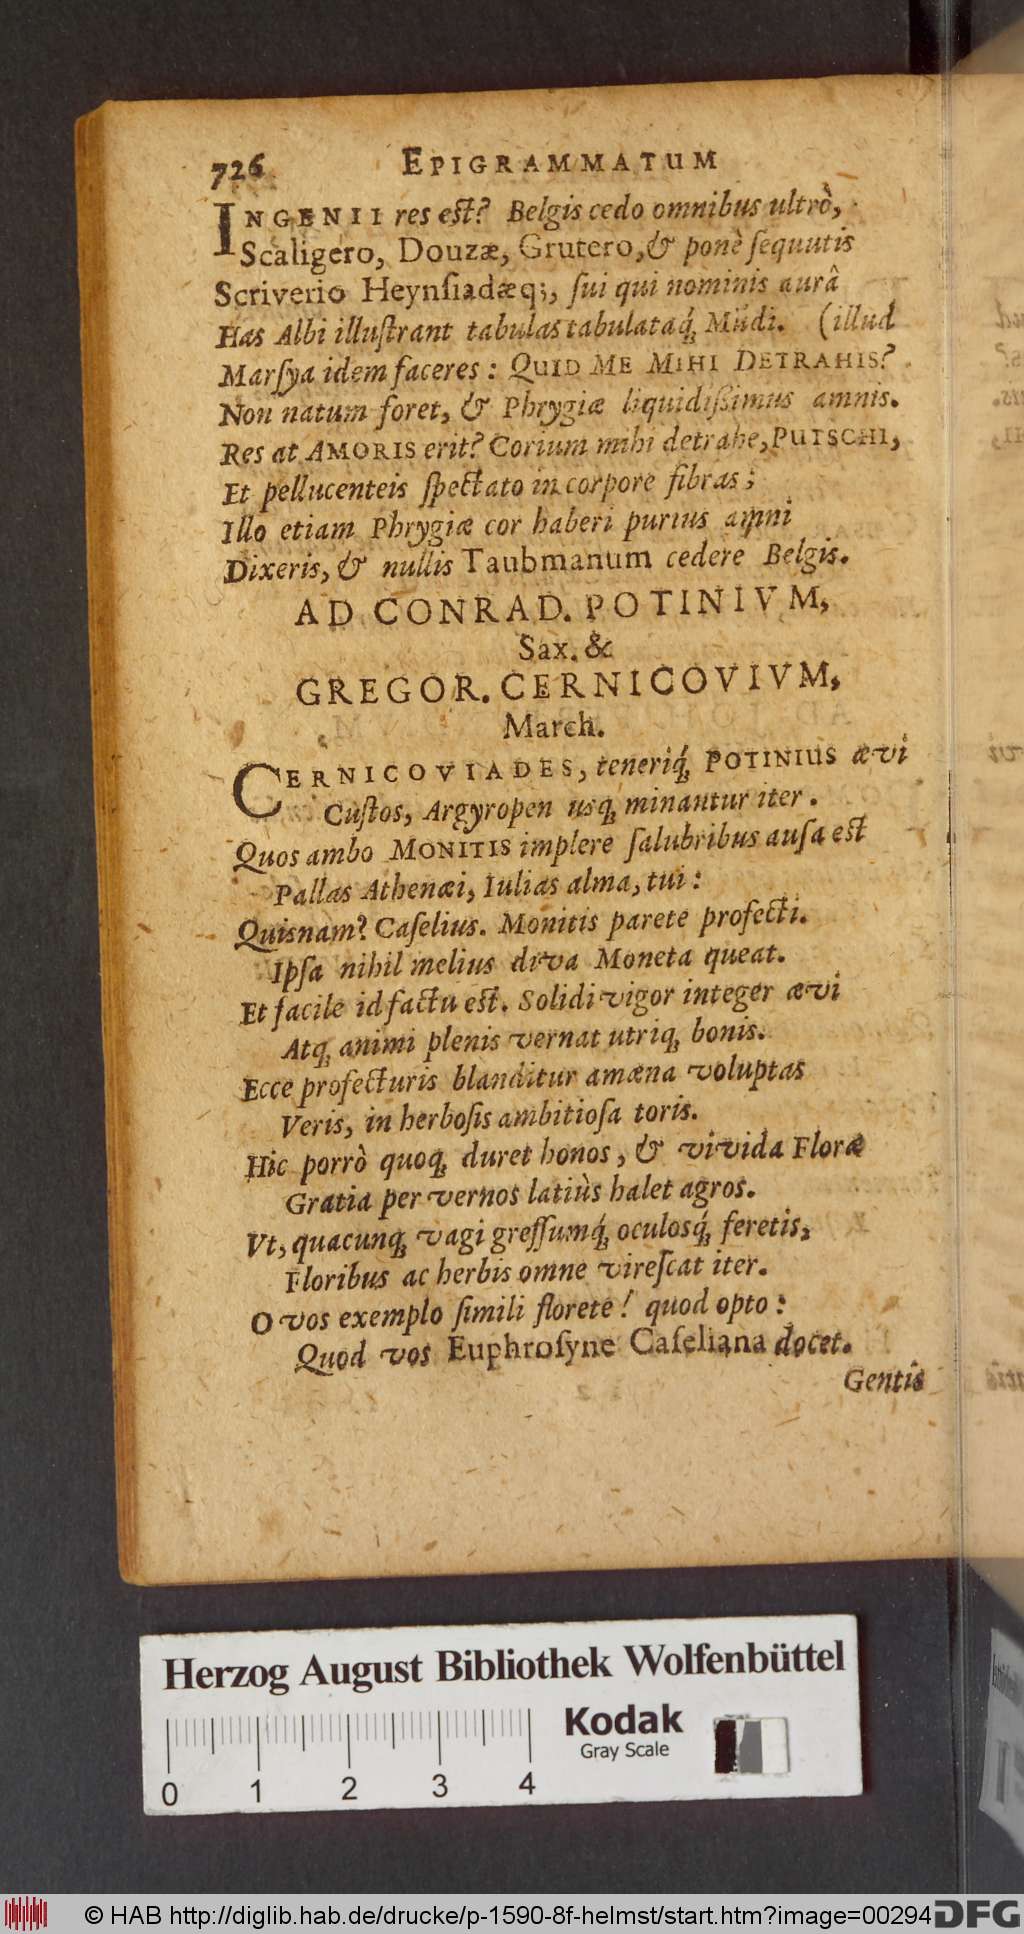 726 EPIGRAMMATUM
INGENII res eſt? Belgis cedo omnibus ultrò,
Scaligero, Douzæ, Grutero, & ponè ſequutis
Scriverio Heynſiadæq;, ſui qui nominis aurâ
Has Albi illuſtrant tabulas tabulataq́; Mūdi. (illud
Marſya idem faceres: QUID ME MIHI DETRAHIS?
Non natum foret, & Phrygiæ liquidiſſimus amnis.
Res at AMORIS erit? Corium mihi detrahe, PUTSCHI,
Et pellucenteis ſpectato in corpore fibras;
Illo etiam Phrygiæ cor haberi purius amni
Dixeris, & nullis Taubmanum cedere Belgis.
AD CONRAD. POTINIVM,
Sax. &
GREGOR. CERNICOVIVM,
March.
CERNICOVIADES, teneriq́; POTINIUS ævi
Cuſtos, Argyropen uſq; minantur iter.
Quos ambo MONITIS implere ſalubribus auſa eſt
Pallas Athenæi, Iulias alma, tui:
Quisnam? Caſelius. Monitis parete profecti.
Ipſa nihil melius diva Moneta queat.
Et facile id factu eſt. Solidi vigor integer ævi
Atq; animi plenis vernat utriq; bonis.
Ecce profecturis blanditur amœna voluptas
Veris, in herboſis ambitioſa toris.
Hic porrò quoq; duret honos, & vivida Floræ
Gratia per vernos latiùs halet agros.
Vt, quacunq; vagi greſſumq́; oculosq́; feretis,
Floribus ac herbis omne vireſcat iter.
O vos exemplo ſimili florete! quod opto:
Quod vos Euphroſyne Caſeliana docet.
Gentis
Herzog August Bibliothek Wolfenbüttel
Kodak
Gray Scale
0 1 2 3 4
© HAB http://diglib.hab.de/drucke/p-1590-8f-helmst/start.htm?image=00294 DFG